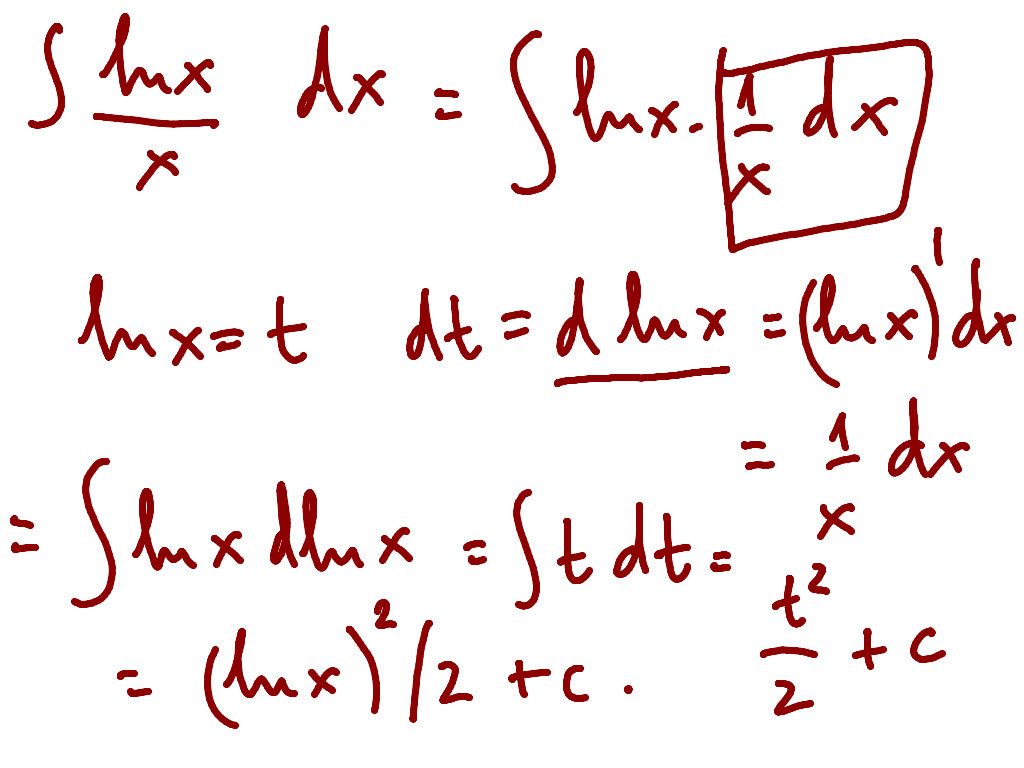 ∫ lnx/x dx = ∫ lnx · 1/x dx
lnx = t dt = d lnx = (lnx)' dx
= 1/x dx
= ∫ lnx dlnx = ∫ t dt = t²/2 + c
= (lnx)²/2 + c.